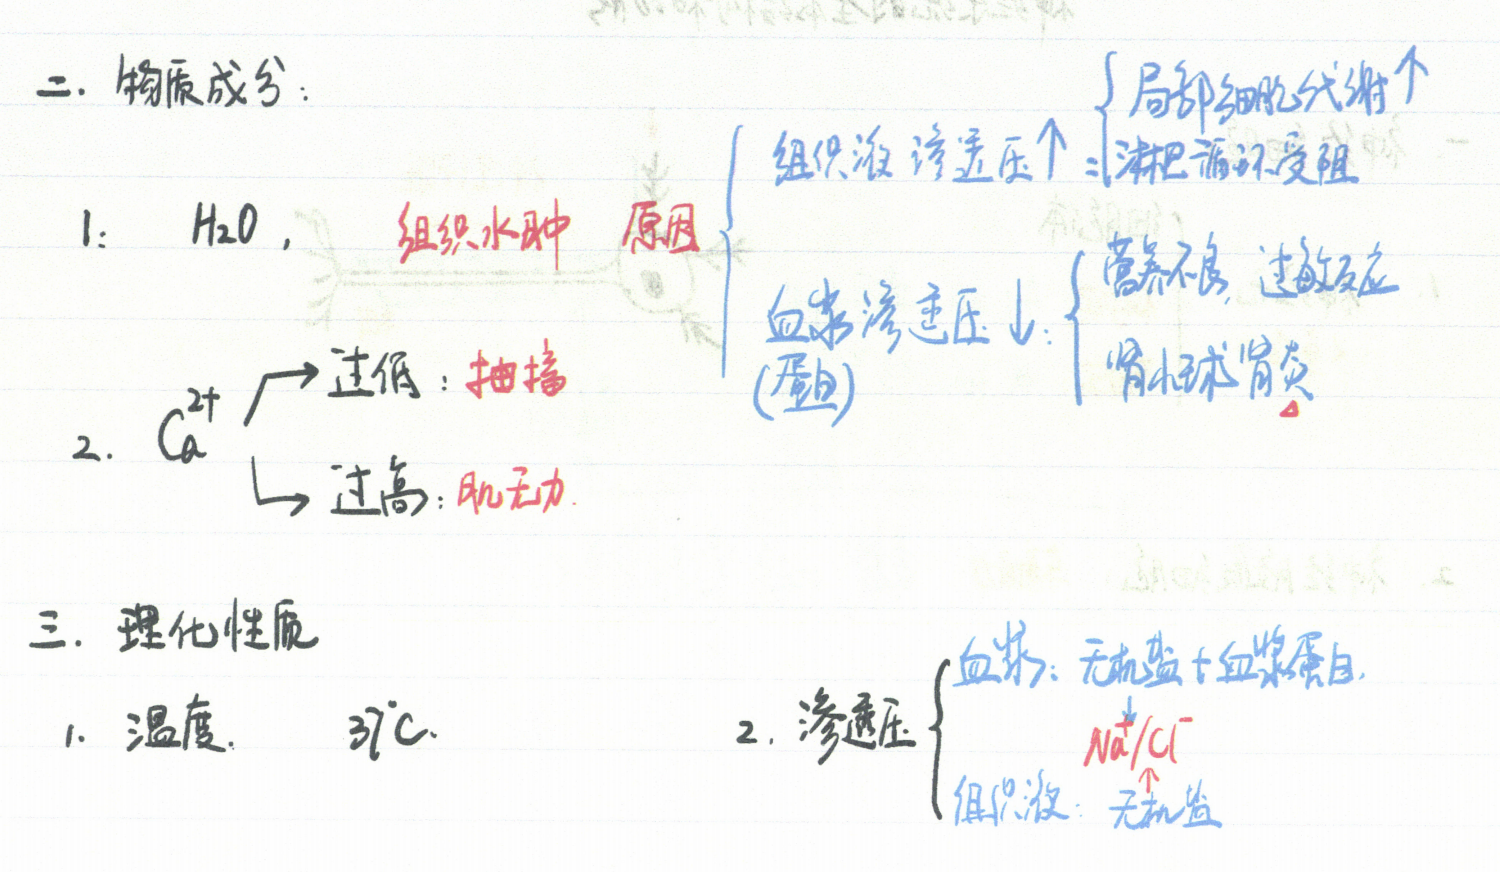 二. 物质成分:
1: H₂O, 组织水肿 原因
组织液渗透压↑:
局部细胞代谢↑
淋巴循环受阻
血浆渗透压↓:
(蛋白)
营养不良, 过敏反应
肾小球肾炎
2. Ca²⁺
过低: 抽搐
过高: 肌无力.
三. 理化性质
1. 温度. 37℃.
2. 渗透压
血浆: 无机盐+血浆蛋白.
Na⁺/Cl⁻
组织液: 无机盐